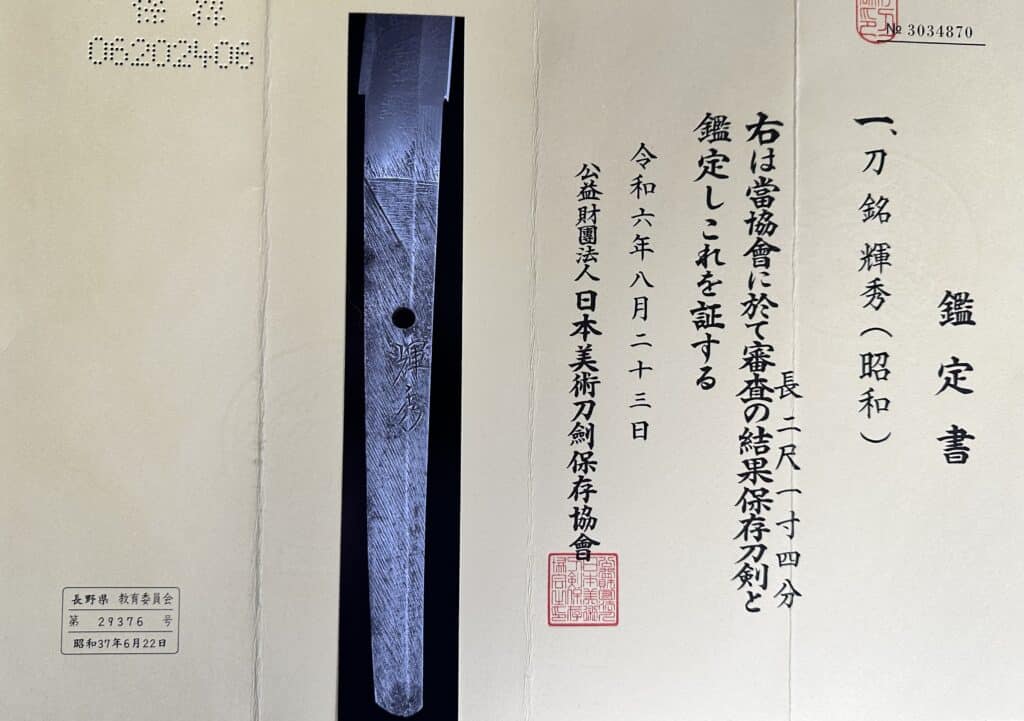 № 3034870
鑑定書
一、刀 銘 輝秀（昭和）
長 二尺一寸四分
右は當協會に於て審査の結果保存刀剣と
鑑定しこれを証する
令和六年八月二十三日
公益財團法人 日本美術刀劍保存協會
輝秀
06202406
長野県 教育委員会
第 29376 号
昭和37年6月22日